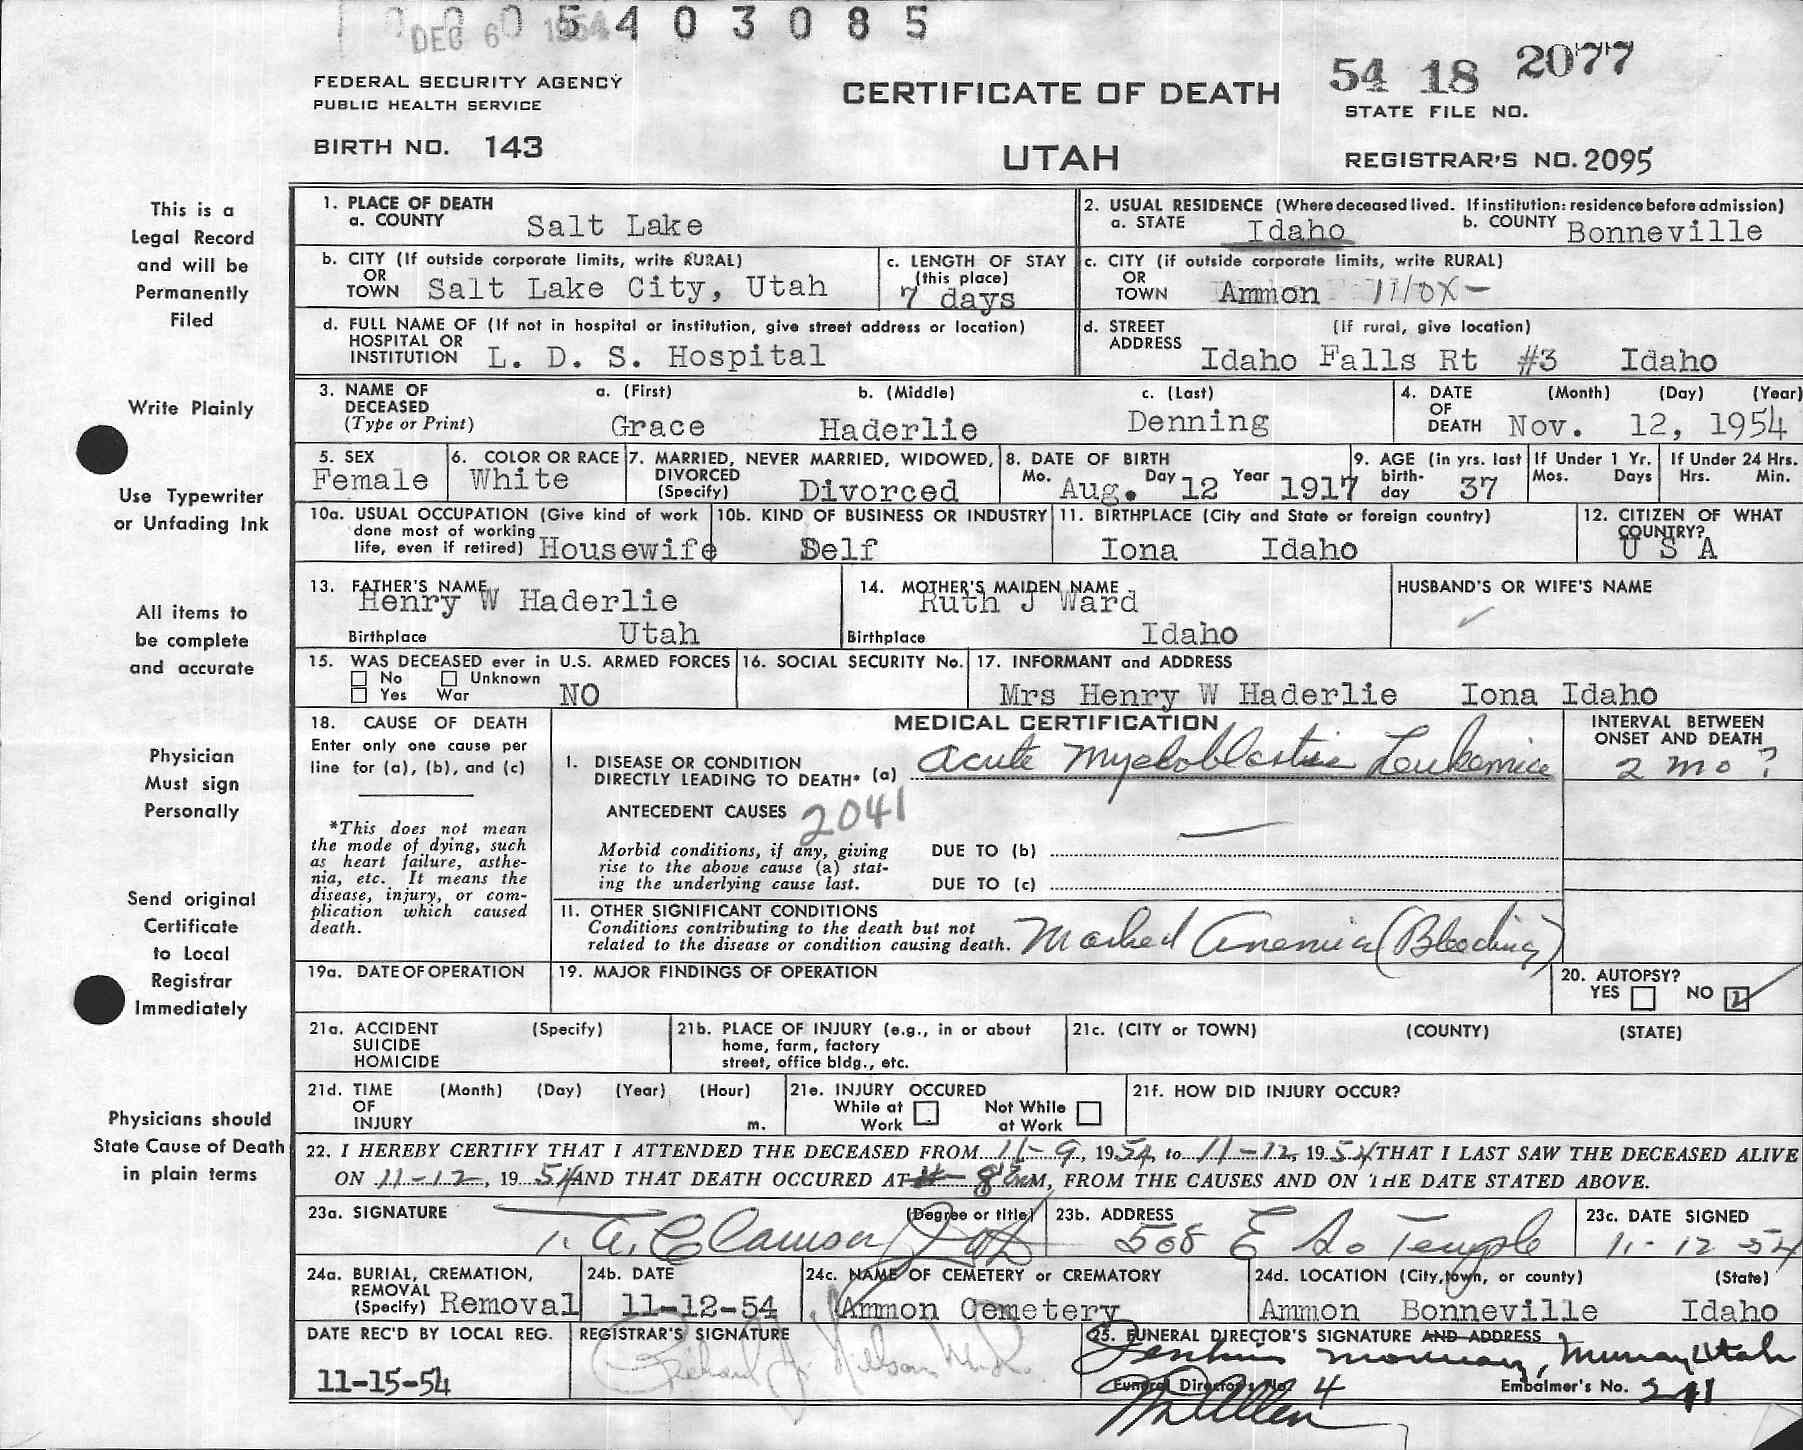 DEC 6 1954
0 5 4 0 3 0 8 5
FEDERAL SECURITY AGENCY
PUBLIC HEALTH SERVICE
BIRTH NO. 143
CERTIFICATE OF DEATH
UTAH
54 18 2077
STATE FILE NO.
REGISTRAR'S NO. 2095
This is a
Legal Record
and will be
Permanently
Filed
Write Plainly
Use Typewriter
or Unfading Ink
All items to
be complete
and accurate
Physician
Must sign
Personally
Send original
Certificate
to Local
Registrar
Immediately
Physicians should
State Cause of Death
in plain terms
1. PLACE OF DEATH
a. COUNTY Salt Lake
2. USUAL RESIDENCE (Where deceased lived. If institution: residence before admission)
a. STATE Idaho b. COUNTY Bonneville
b. CITY (If outside corporate limits, write RURAL)
OR
TOWN Salt Lake City, Utah
c. LENGTH OF STAY
(this place)
7 days
c. CITY (if outside corporate limits, write RURAL)
OR
TOWN Ammon
d. FULL NAME OF (If not in hospital or institution, give street address or location)
HOSPITAL OR
INSTITUTION L. D. S. Hospital
d. STREET (if rural, give location)
ADDRESS
Idaho Falls Rt #3 Idaho
3. NAME OF
DECEASED
(Type or Print)
a. (First) b. (Middle) c. (Last)
Grace Haderlie Denning
4. DATE (Month) (Day) (Year)
OF
DEATH Nov. 12, 1954
5. SEX
Female
6. COLOR OR RACE
White
7. MARRIED, NEVER MARRIED, WIDOWED,
DIVORCED
(Specify) Divorced
8. DATE OF BIRTH
Mo. Aug. Day 12 Year 1917
9. AGE (in yrs. last
birth-
day 37
If Under 1 Yr.
Mos. Days
If Under 24 Hrs.
Hrs. Min.
10a. USUAL OCCUPATION (Give kind of work
done most of working
life, even if retired) Housewife
10b. KIND OF BUSINESS OR INDUSTRY
Self
11. BIRTHPLACE (City and State or foreign country)
Iona Idaho
12. CITIZEN OF WHAT
COUNTRY?
U S A
13. FATHER'S NAME
Henry W Haderlie
Birthplace Utah
14. MOTHER'S MAIDEN NAME
Ruth J Ward
Birthplace Idaho
HUSBAND'S OR WIFE'S NAME
15. WAS DECEASED ever in U.S. ARMED FORCES
No Unknown
Yes War NO
16. SOCIAL SECURITY No.
17. INFORMANT and ADDRESS
Mrs Henry W Haderlie Iona Idaho
18. CAUSE OF DEATH
Enter only one cause per
line for (a), (b), and (c)
*This does not mean
the mode of dying, such
as heart failure, asthe-
nia, etc. It means the
disease, injury, or com-
plication which caused
death.
MEDICAL CERTIFICATION
I. DISEASE OR CONDITION
DIRECTLY LEADING TO DEATH* (a) Acute Myeloblastic Leukemia
INTERVAL BETWEEN
ONSET AND DEATH
2 mo ?
ANTECEDENT CAUSES 2041
Morbid conditions, if any, giving
rise to the above cause (a) stat-
ing the underlying cause last.
DUE TO (b)
DUE TO (c)
II. OTHER SIGNIFICANT CONDITIONS
Conditions contributing to the death but not
related to the disease or condition causing death. Marked Anemia (Bleeding)
19a. DATE OF OPERATION
19. MAJOR FINDINGS OF OPERATION
20. AUTOPSY?
YES NO 2
21a. ACCIDENT (Specify)
SUICIDE
HOMICIDE
21b. PLACE OF INJURY (e.g., in or about
home, farm, factory
street, office bldg., etc.
21c. (CITY or TOWN) (COUNTY) (STATE)
21d. TIME (Month) (Day) (Year) (Hour)
OF
INJURY m.
21e. INJURY OCCURED
While at Not While
Work at Work
21f. HOW DID INJURY OCCUR?
22. I HEREBY CERTIFY THAT I ATTENDED THE DECEASED FROM 11-9, 1954, to 11-12, 1954 THAT I LAST SAW THE DECEASED ALIVE
ON 11-12, 1954 AND THAT DEATH OCCURED AT M, FROM THE CAUSES AND ON THE DATE STATED ABOVE.
23a. SIGNATURE (Degree or title)
T. A. Clawson
23b. ADDRESS
508 E So Temple
23c. DATE SIGNED
11-12 54
24a. BURIAL, CREMATION,
REMOVAL
(Specify) Removal
24b. DATE
11-12-54
24c. NAME OF CEMETERY or CREMATORY
Ammon Cemetery
24d. LOCATION (City, town, or county) (State)
Ammon Bonneville Idaho
DATE REC'D BY LOCAL REG.
11-15-54
REGISTRAR'S SIGNATURE
25. FUNERAL DIRECTOR'S SIGNATURE AND ADDRESS
Jenkins Mortuary, Murray, Utah
Funeral Director's No. 4 Embalmer's No. 241